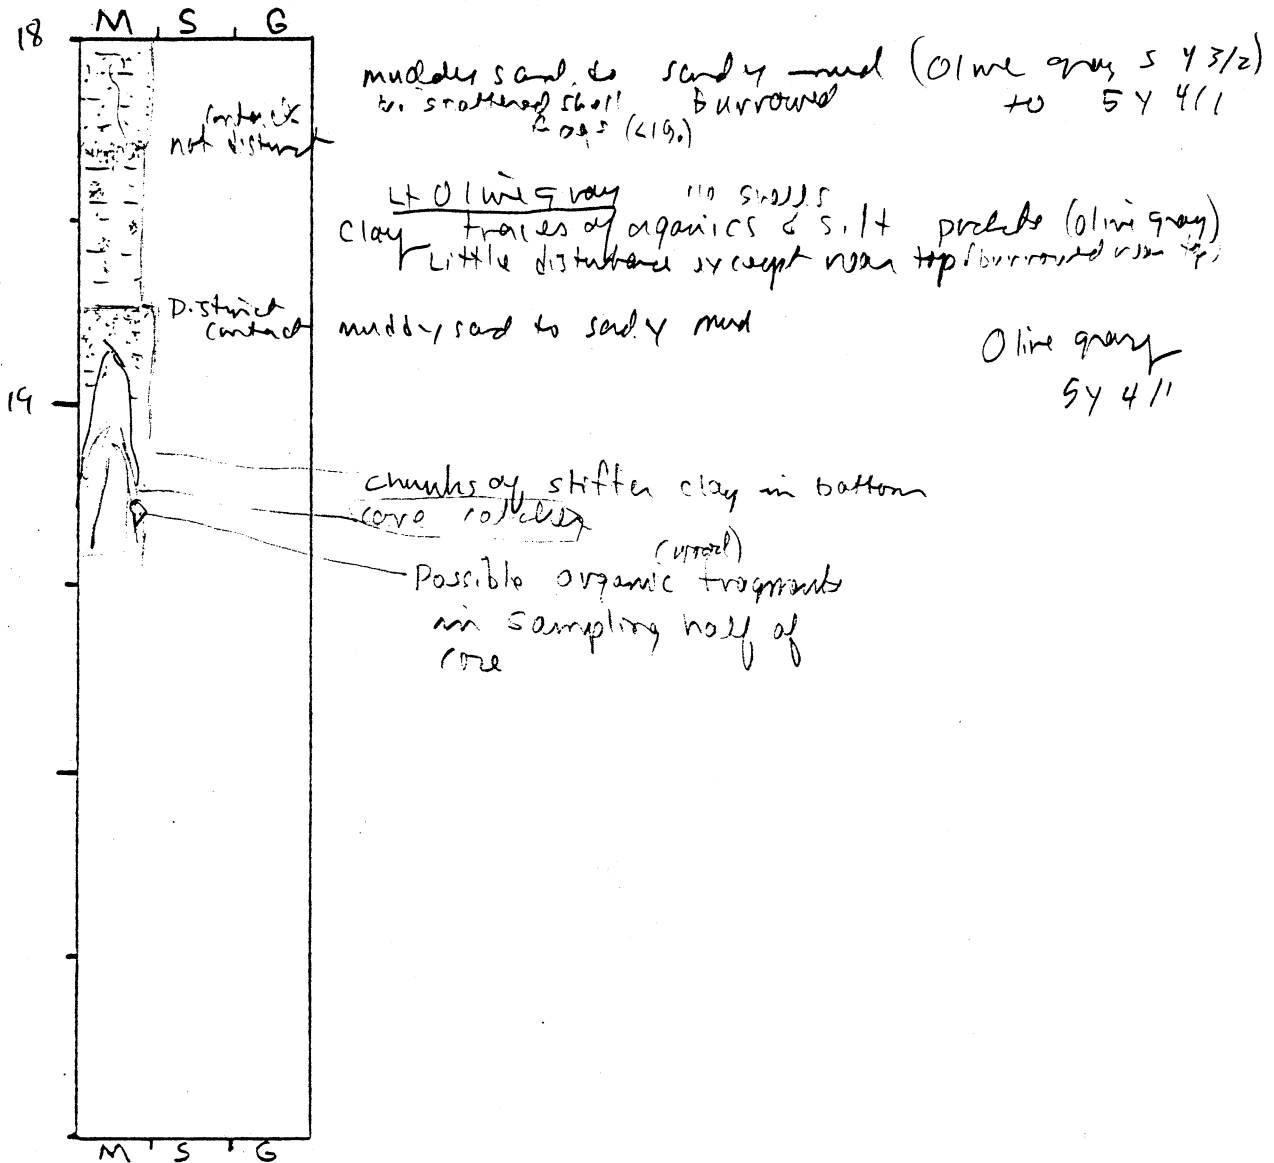 M S G
18
muddy sand to sandy mud (Olive gray 5 Y 3/2)
w. scattered shell burrowed to 5 Y 4/1
(<1%)
Contact is
not distinct
Lt Olive gray no shells
clay traces of organics & silt pockets (olive gray)
Little disturbance except near top/burrowed near top
Distinct
contact muddy sand to sandy mud
Olive gray
5Y 4/1
19
chunks of stiffer clay in bottom
core catcher
(wood)
Possible organic fragments
in sampling half of
core
M S G